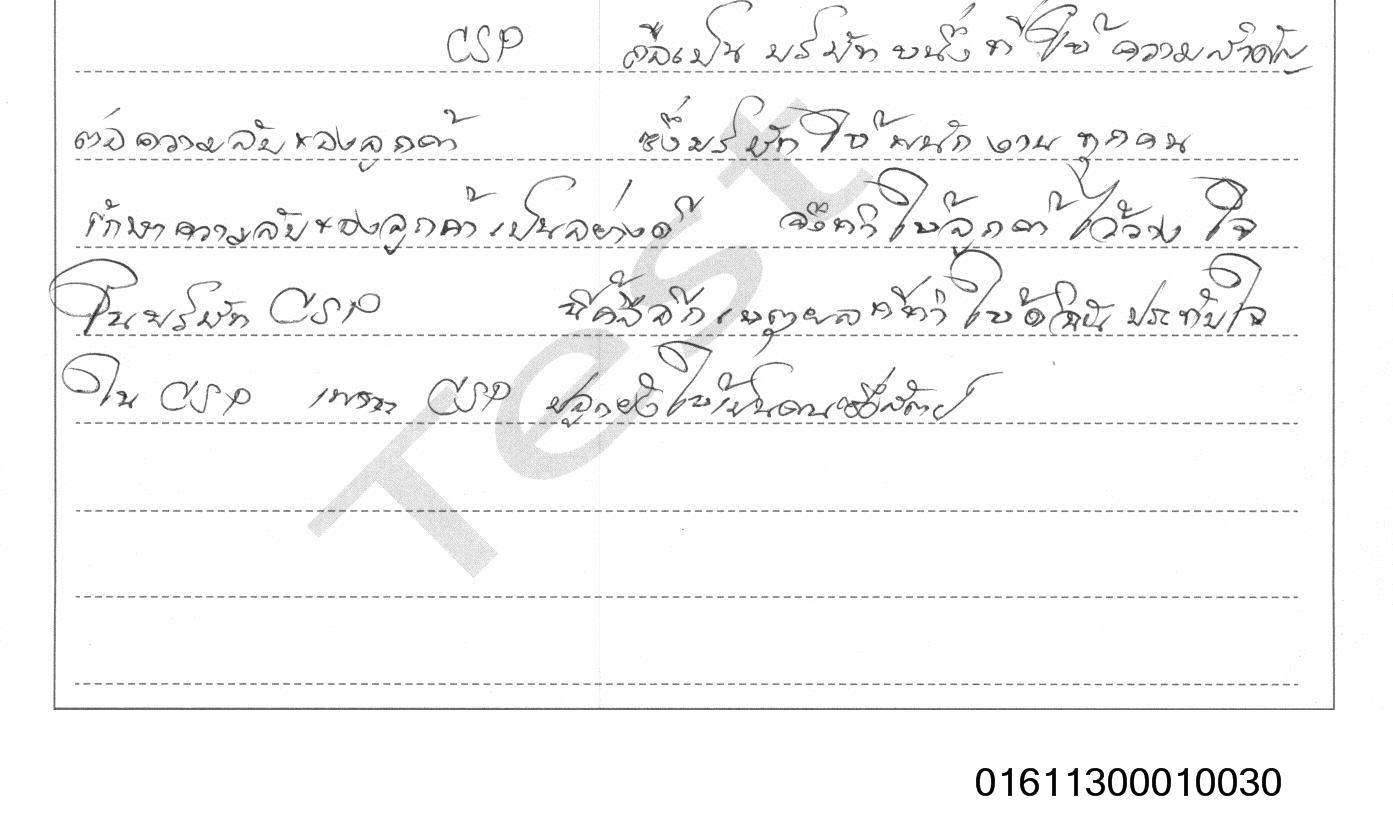 CSP ถือเป็น บริษัท หนึ่ง ที่ให้ ความสำคัญ
ต่อความลับของลูกค้า ซึ่งบริษัท ให้พนักงาน ทุกคน
รักษาความลับของลูกค้าเป็นอย่างดี จึงทำให้ลูกค้าไว้วางใจ
ในบริษัท CSP นี่คืออีกเหตุผลที่ทำให้ดิฉัน ประทับใจ
ใน CSP เพราะ CSP ปลูกฝังให้เป็นคนซื่อสัตย์
Test
01611300010030